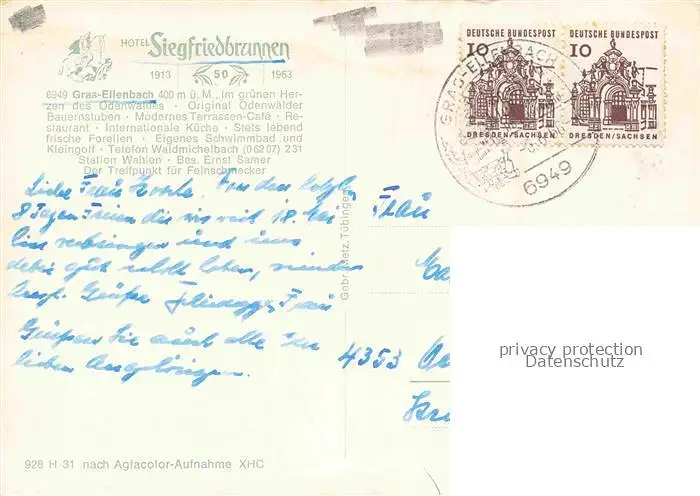 HOTEL Siegfriedbrunnen
1913 50 1963
6949 Gras-Ellenbach 400 m ü. M., im grünen Her-
zen des Odenwaldes · Original Odenwälder
Bauernstuben · Modernes Terrassen-Café · Re-
staurant · Internationale Küche · Stets lebend
frische Forellen · Eigenes Schwimmbad und
Kleingolf · Telefon Waldmichelbach (06207) 231
Station Wahlen · Bes. Ernst Samer
Der Treffpunkt für Feinschmecker
DEUTSCHE BUNDESPOST
10
DRESDEN/SACHSEN
DEUTSCHE BUNDESPOST
10
DRESDEN/SACHSEN
GRAS-ELLENBACH
6949
Liebe Frau Von den letzten
8 Tagen Ferien die wir seit 18. Mai
hier verbringen und uns
dabei gut senden
Grüße Frau
Grüßen Sie auch alle Ihre
lieben Angehörigen.
Gebr. Metz, Tübingen
Frau
4353
928 H 31 nach Agfacolor-Aufnahme XHC
privacy protection
Datenschutz